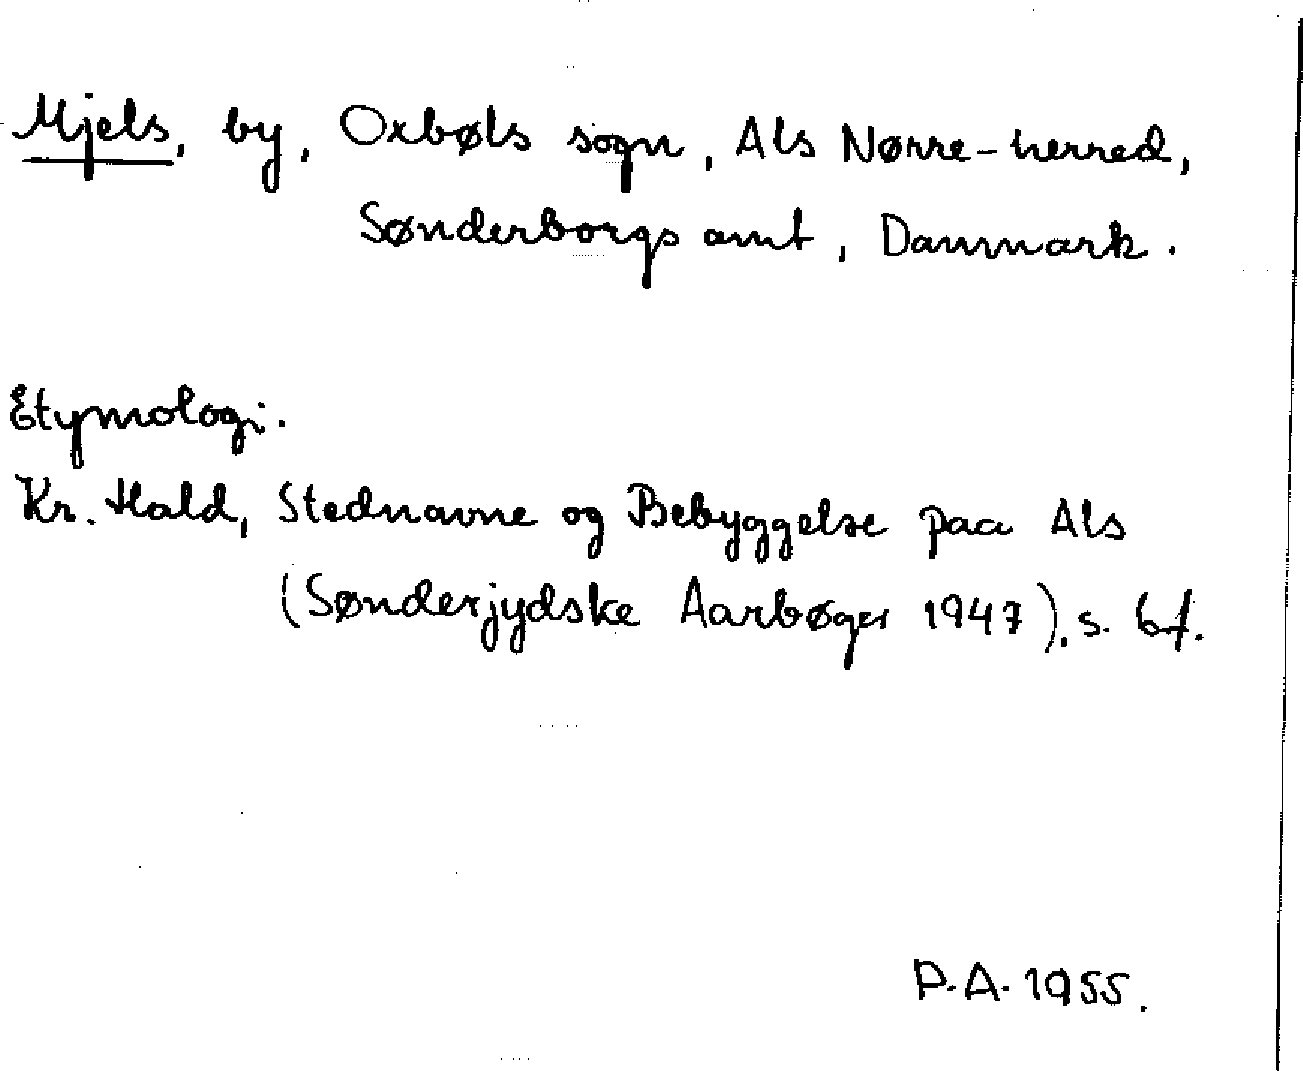 Mjels, by, Oxbøls sogn, Als Nørre-herred,
Sønderborgs amt, Danmark.
Etymologi.
Kr. Hald, Stednavne og Bebyggelse paa Als
(Sønderjydske Aarbøger 1947), s. 6f.
P.A. 1955.